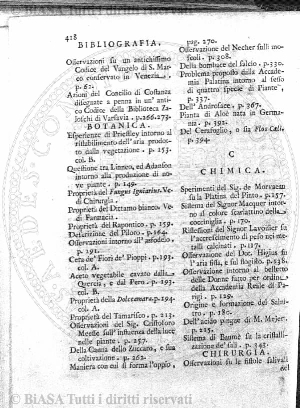 418
BIBLIOGRAFIA.
Osservazioni su un antichissimo
Codice del Vangelo di S. Mar-
co conservato in Venezia
p. 62.
Azioni del Concilio di Costanza
disegnate a penna in un' anti-
co Codice della Biblioteca Za-
loschi di Varsavia . p.256.273.
BOTANICA.
Esperienze di Priestley intorno al
ristabilimento dell' aria prodot-
to dalla vegetazione . p. 153.
col. B.
Questione tra Linneo, ed Adanson
intorno alla produzione di no-
ve piante . p. 149.
Proprietà del Fungus Igniarius. Ve-
di Chirurgia.
Proprietà del Dittamo bianco. Ve-
di Farmacia.
Proprietà del Rapontico . p. 159.
Descrizione del Piloto . p. 164.
Osservazioni intorno all' asfodelo,
p. 191.
Cera de' Fiori de' Pioppi . p. 193.
col. A.
Aceto vegetabile cavato dalla
Quercia, e dal Pero . p. 193.
col. B.
Proprietà della Dolcamara. p.194.
col. A.
Proprietà del Tamarisco . p. 213.
Osservazioni del Sig. Cristoforo
Meesse sull' influenza della luce
nelle piante . p. 257.
Della Canna dello Zuccaro, e sua
coltivazione . p. 262.
Maniera con cui si forma l'oppio,
pag. 270.
Osservazione del Necher sulli mos-
coli . p. 308.
Della bombace del falcio . p. 330.
Problema proposto dalla Accade-
mia Palatina intorno al sesso
di quattro specie di Piante",
p. 337.
Dell' Androsace . p. 367.
Pianta di Aloè nata in Germa-
nia . p. 392.
Del Cerafoglio, o sia Flos Cœli.
p. 394.
C
CHIMICA.
Sperimenti del Sig. de Morvaeu
su la Platina del Pinto. p.157.
Sistema del Signor Macquer intor-
no al colore scarlattino della
cocciniglia . p. 170.
Riflessioni del Signor Lavosier su
l'accrescimento di peso nei me-
talli calcinati . p. 117.
Osservazione del Dot. Higius su
l'aria fissa, e sul flogisto. p.238.
Osservazione intorno al belletto
delle Donne fatto per ordine
della Accademia Reale di Pa-
rigi . p. 129.
Origine e formazione del Salni-
tro . p. 180.
Dell'acido pingue di M. Mejer.
p. 225.
Sistema di Baumè su la cristalli-
zazione de' sali . p. 345.
CHIRURGIA.
Osservazioni su le fistole salivali
del
© BIASA Tutti i diritti riservati www.biasa.org